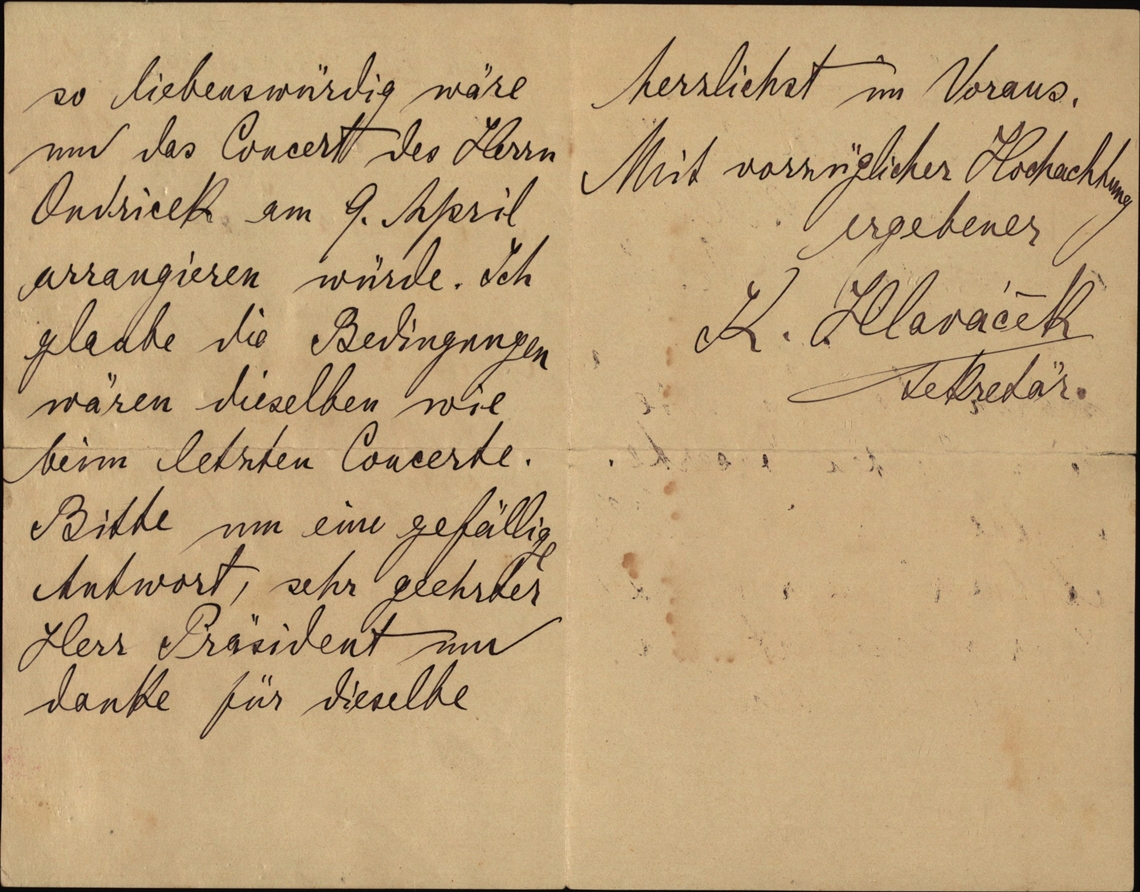 so liebenswürdig wäre
und das Concert des Herrn
Ondricek am 9. April
arrangieren würde. Ich
glaube die Bedingungen
wären dieselben wie
beim letzten Concerte.
Bitte um eine gefällige
Antwort, sehr geehrter
Herr Präsident und
danke für dieselbe
herzlichst im Voraus.
Mit vorzüglicher Hochachtung
ergebener
K. Hlaváček
Sekretär.